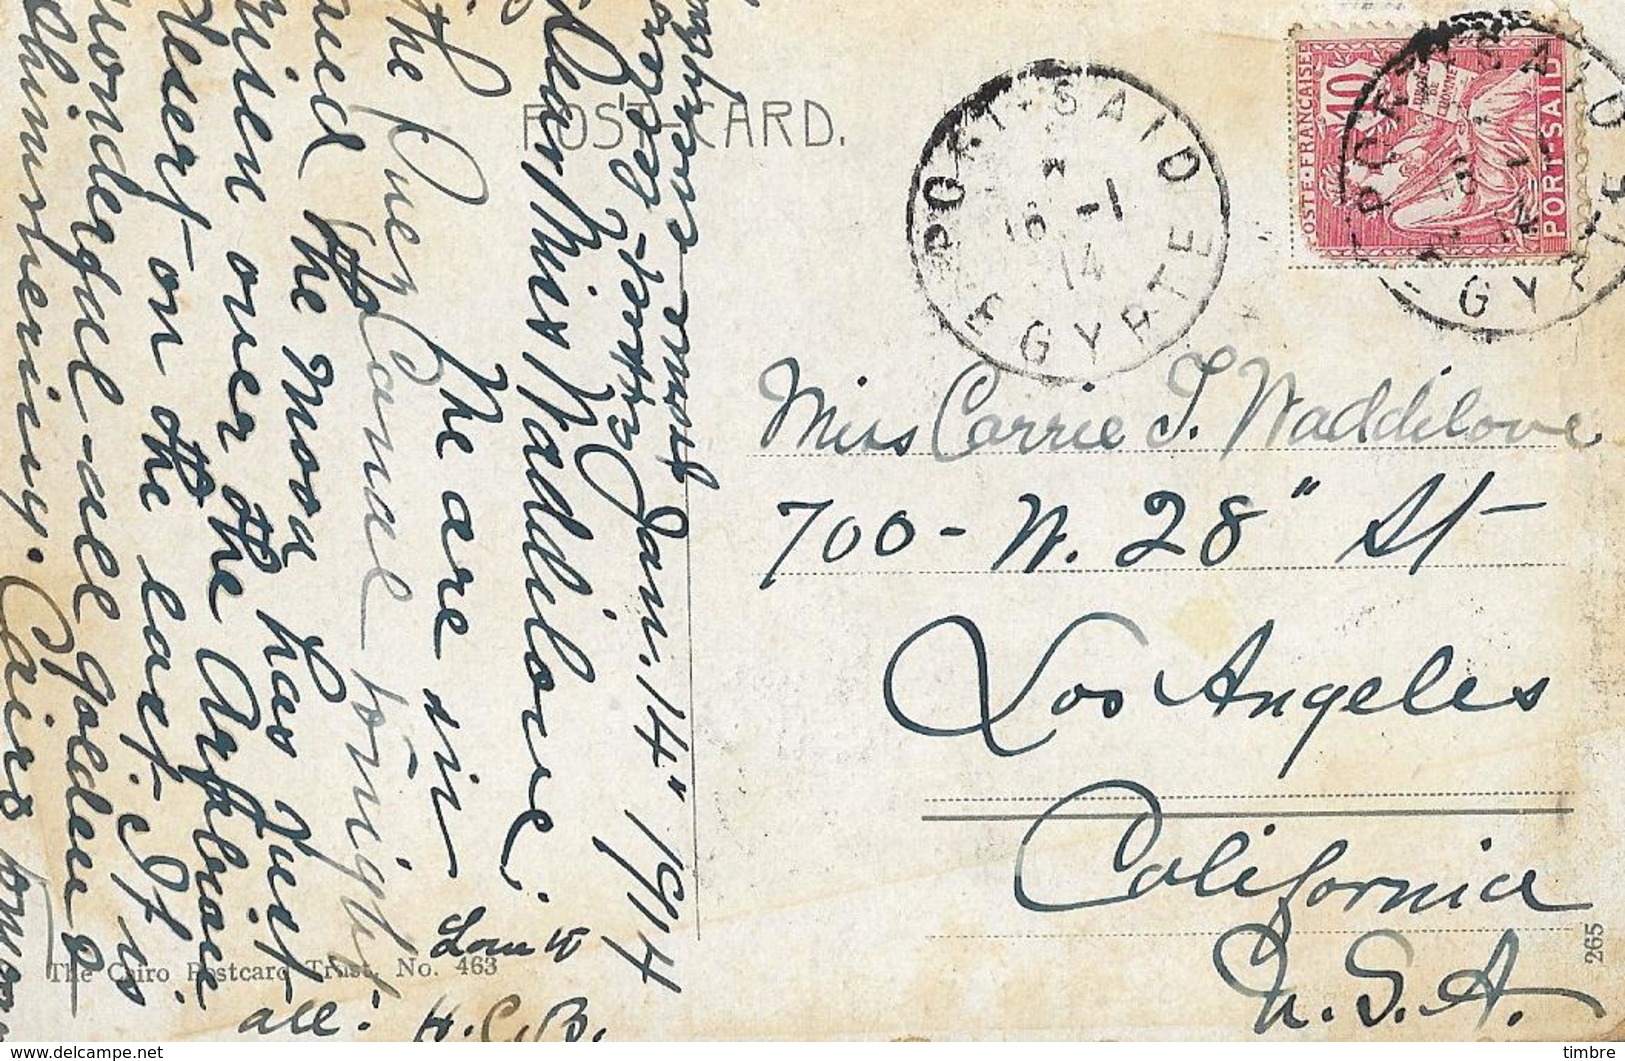 POST CARD.
Jan. 14" 1914
Dear Miss Waddilove.
We are in
the Suez Canal tonight
and the moon has just
risen over the Arabian
desert on the east. It is
wonderful - all golden &
shimmering. Cairo
Love to
all.
H. C. B.
Miss Carrie T. Waddilove
700 - W. 28" St
Los Angeles
California
U. S. A.
PORT-SAID
16 -1
14
EGYPTE
POSTE FRANÇAISE
10
PORT-SAID
The Cairo Postcard Trust, No. 463
265
timbre